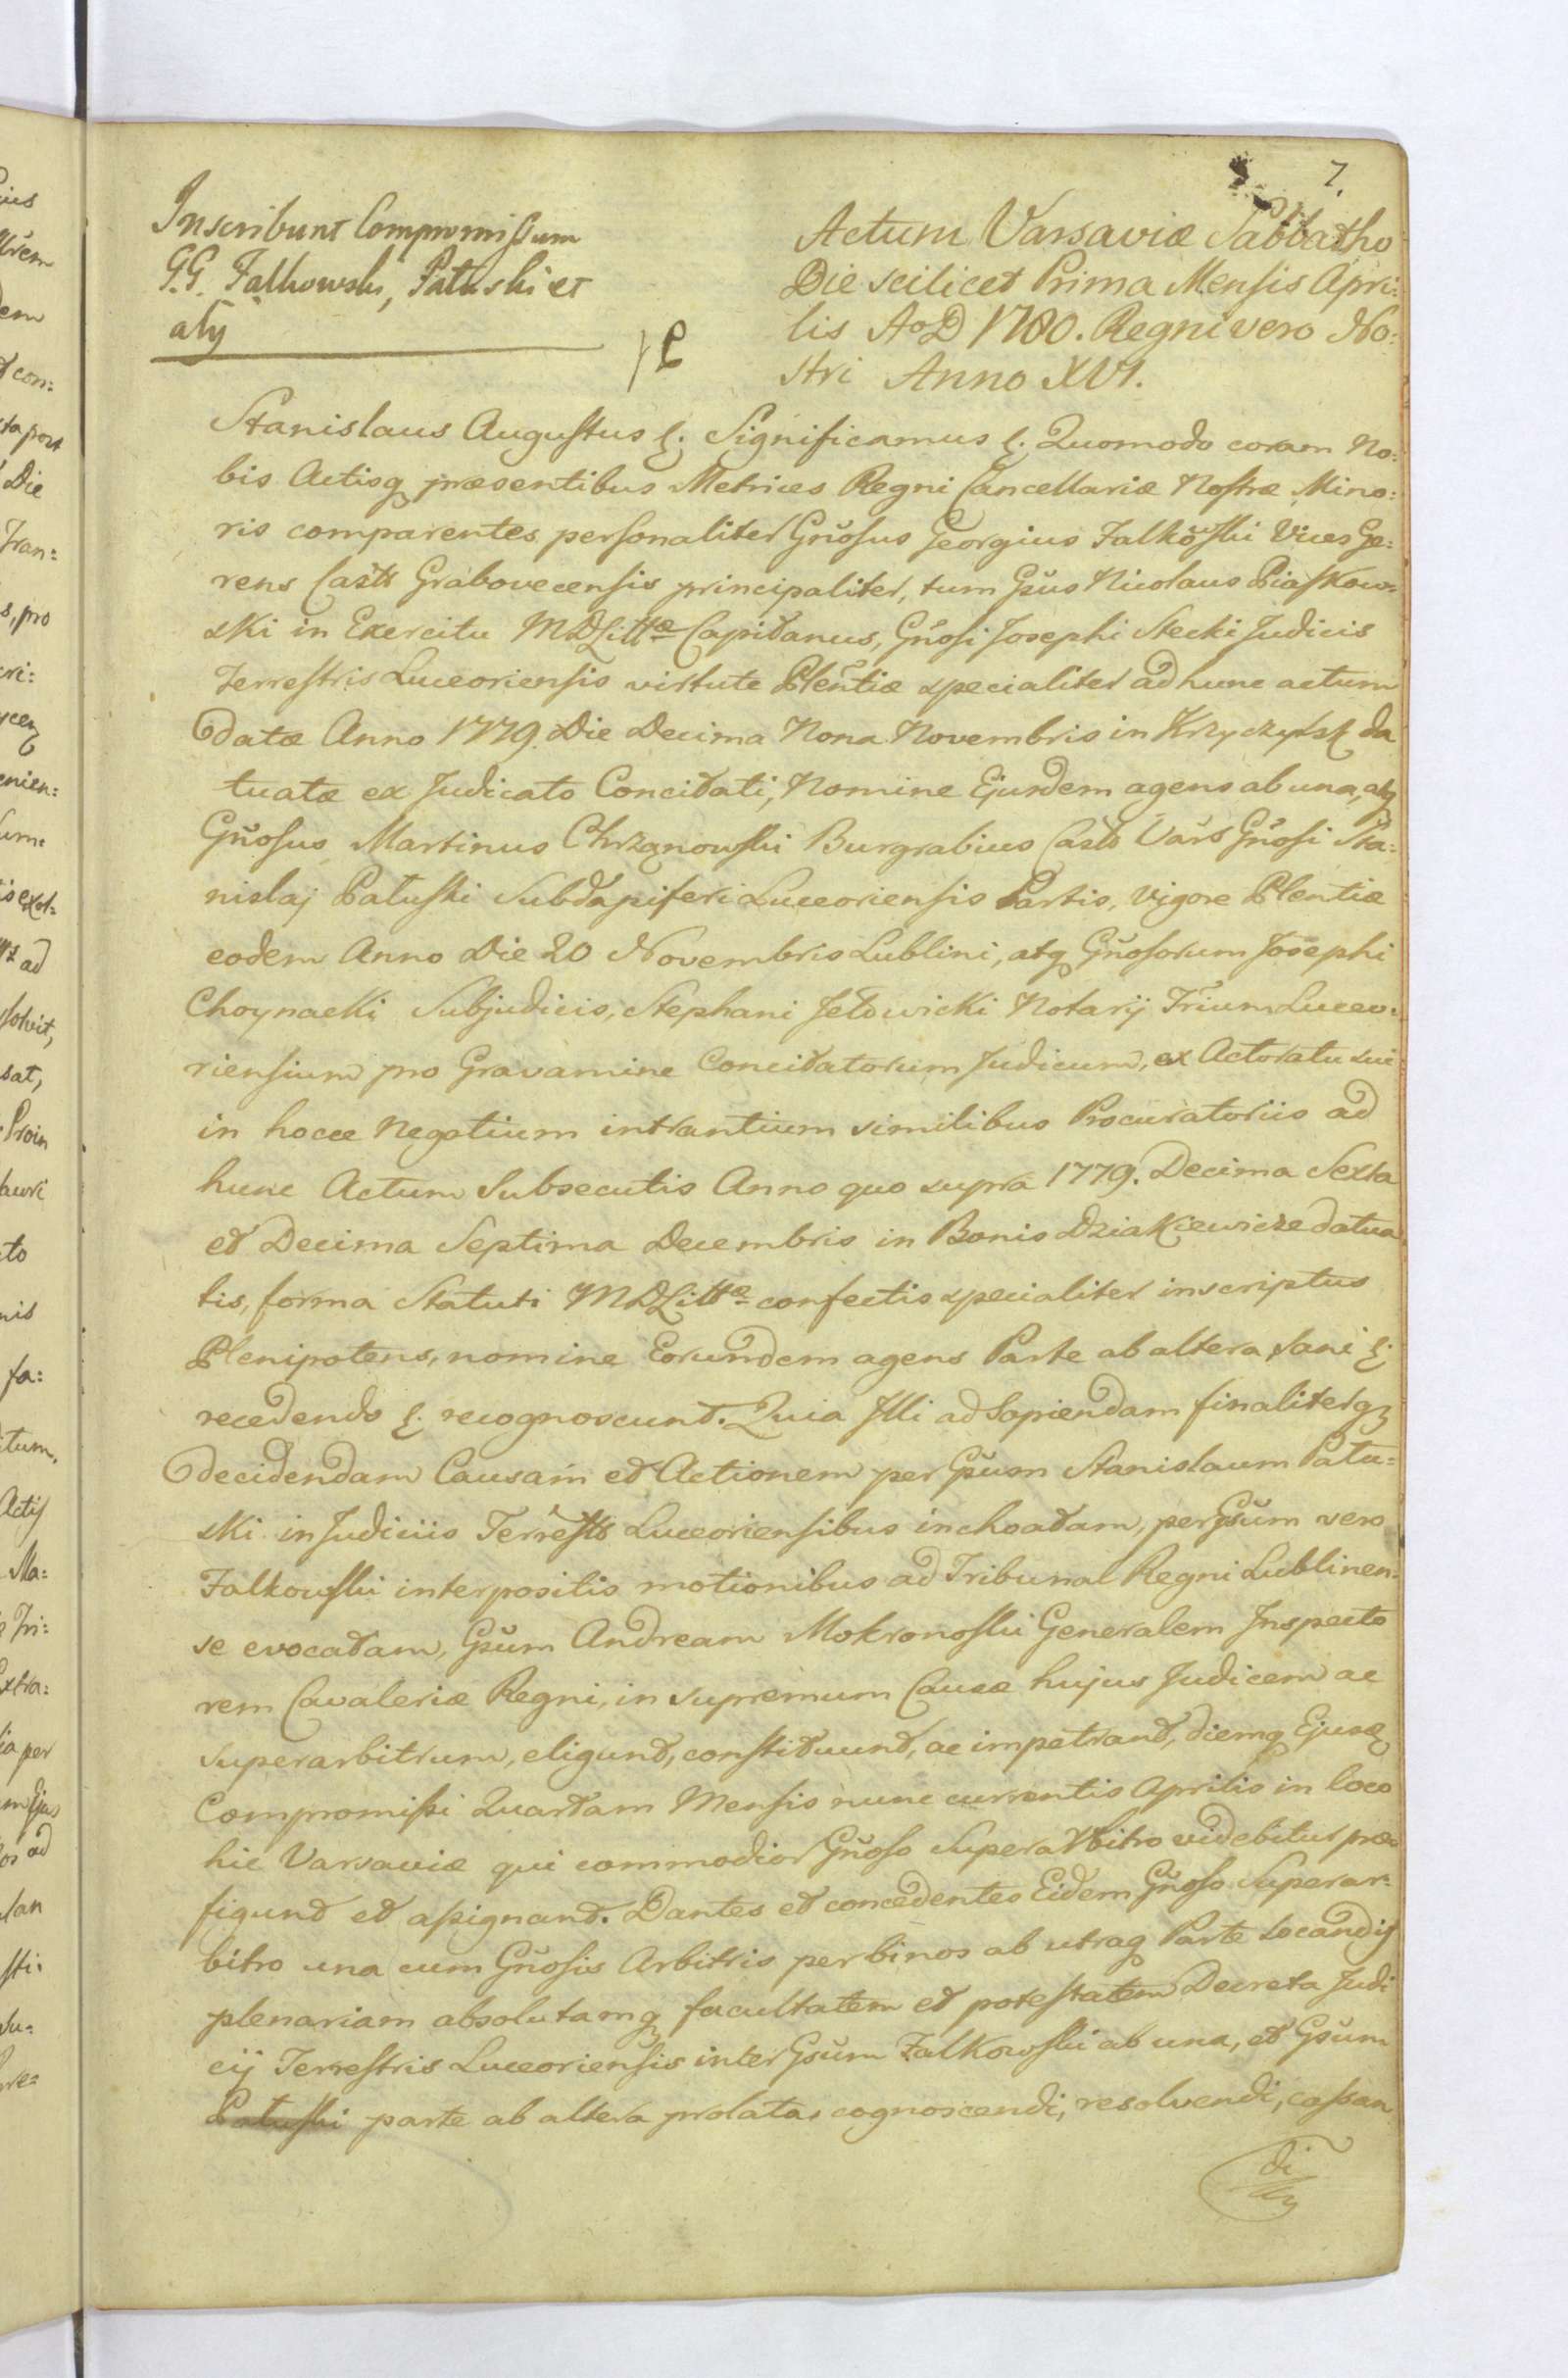 7.
Inscribunt Compromissum
G.G. Falkowski, Patuski et
alij
Actum Varsaviæ Sabbatho
Die scilicet Prima Mensis Apri:
lis AoD 1780. Regni vero No:
stri Anno XVI.
Stanislaus Augustus &. Significamus &. Quomodo coram No:
bis Actisq præsentibus Metrices Regni Cancellariæ Nostræ Mino:
ris comparentes personaliter Gñosus Georgius Falkoŵski Vices Ge:
rens Castr Grabovecensis principaliter, tum Gsus Nicolaus Piaskow-
ski in Exercitu MDLittæ Capitanus, Gñosi Josephi Stecki Judicis
Terrestris Luceoriensis virtute Plentiæ specialiter ad hunc actum
datæ Anno 1779. Die Decima Nona Novembris in da
tuatæ ex Judicato Concitati, Nomine Ejusdem agens ab una, atq
Gñosus Martinus Chrzanowski Burgrabius Castr Vars Gñosi Sta:
nislaj Patuski Subdapiferi Luceoriensis Partis, Vigore Plentiæ
eodem Anno Die 20 Novembris Lublini, atq Gñosorum Josephi
Choynacki Subjudicis, Stephani Jełowicki Notarij Trium Luceo:
riensium pro Gravamine Concitatorum Judicum, ex Actoratu sui
in hocce Negotium intrantium similibus Procuratoriis ad
hunc Actum Subsecutis Anno quo supra 1779. Decima Sexta
et Decima Septima Decembris in Bonis Dziakiewicze datua
tis, forma Statuti MDLittæ confectis specialiter inscriptus
Plenipotens, nomine Eorundem agens Parte ab altera, sani &.
recedendo &. recognoscunt. Quia Illi ad Sopiendam finaliterq
decidendam Causam et Actionem per Gsum Stanislaum Patu=
ski in Judiciis Terrestr Luceoriensibus inchoatam, per Gsum vero
Falkowski interpositis motionibus ad Tribunal Regni Lublinen-
se evocatam, Gsum Andream Mokronoski Generalem Inspecto
rem Cavaleriæ Regni, in supremum Causæ hujus Judicem ac
superarbitrum, eligunt, constituunt, ac impetrant, diemq Ejusq
Compromissi Quartam Mensis nunc currentis Aprilis in loco
hic Varsaviæ qui commodior Gñoso Superarbitro videbitur præ
figunt et assignant. Dantes et concedentes Eidem Gñoso Superar:
bitro una cum Gñosis Arbitris per binos ab utraq Parte locandis
plenariam absolutamq facultatem et potestatem Decreta Judi
cij Terrestris Luceoriensis inter Gsum Falkowski ab una, et Gsum
Patuski parte ab altera prolata, cognoscendi, resolvendi, cassan
di